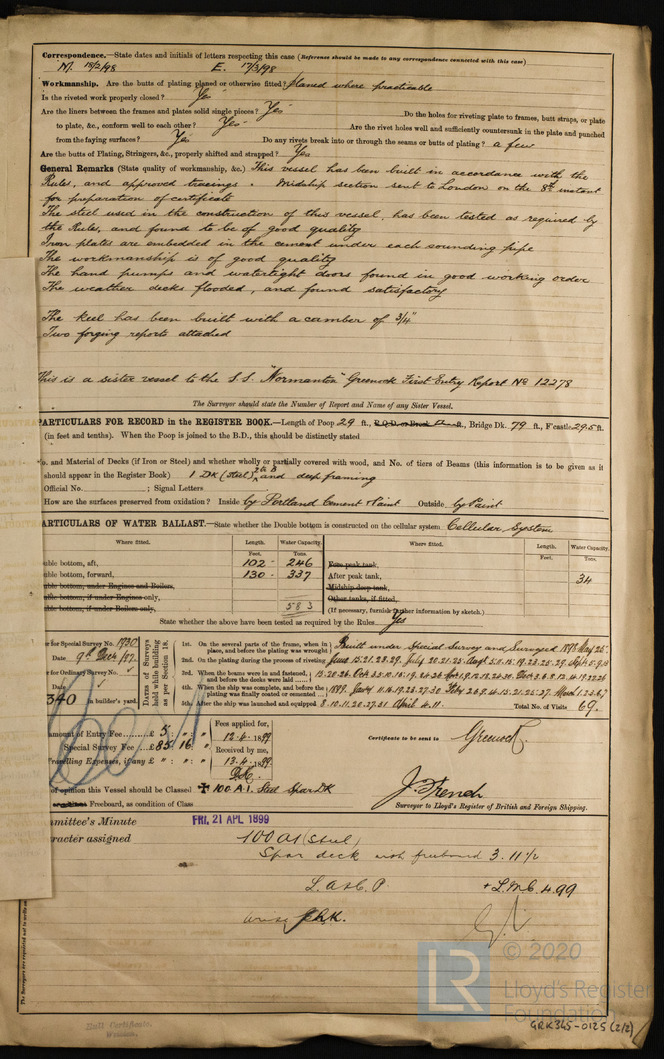 Correspondence.—State dates and initials of letters respecting this case (Reference should be made to any correspondence connected with this case)
M. 18/2/98 E. 17/3/98
Workmanship. Are the butts of plating planed or otherwise fitted? planed where practicable
Is the riveted work properly closed? Yes
Are the liners between the frames and plates solid single pieces? Yes Do the holes for riveting plate to frames, butt straps, or plate
to plate, &c., conform well to each other? Yes Are the rivet holes well and sufficiently countersunk in the plate and punched
from the faying surfaces? Yes Do any rivets break into or through the seams or butts of plating? a few
Are the butts of Plating, Stringers, &c., properly shifted and strapped? Yes
General Remarks (State quality of workmanship, &c.) This vessel has been built in accordance with the
Rules, and approved tracings. Midship section sent to London on the 8th instant
for preparation of certificate
The steel used in the construction of this vessel, has been tested as required by
the Rules, and found to be of good quality
Iron plates are embedded in the cement under each sounding pipe
The workmanship is of good quality
The hand pumps and watertight doors found in good working order
The weather decks flooded, and found satisfactory
The keel has been built with a camber of 3/4"
Two forging reports attached
This is a sister vessel to the S.S. "Normanton" Greenock First Entry Report No 12278
The Surveyor should state the Number of Report and Name of any Sister Vessel.
PARTICULARS FOR RECORD in the REGISTER BOOK.—Length of Poop 29 ft., R.Q.D. or Break ft., Bridge Dk. 79 ft., F'castle 29.5 ft.
(in feet and tenths). When the Poop is joined to the B.D., this should be distinctly stated
o. and Material of Decks (if Iron or Steel) and whether wholly or partially covered with wood, and No. of tiers of Beams (this information is to be given as it
should appear in the Register Book) 1 Dk (Steel) and deep framing
Official No. ; Signal Letters
How are the surfaces preserved from oxidation? Inside by Portland Cement & Paint Outside by Paint
ARTICULARS OF WATER BALLAST.—State whether the Double bottom is constructed on the cellular system Cellular System
Where fitted. Length. Water Capacity. Where fitted. Length. Water Capacity.
Feet. Tons. Feet. Tons.
uble bottom, aft, 102 - 246 Fore peak tank,
uble bottom, forward, 130 - 337 After peak tank, 34
uble bottom, under Engines and Boilers, Midship deep tank,
uble bottom, if under Engines only, Other tanks, if fitted,
uble bottom, if under Boilers only, 583 (If necessary, furnish further information by sketch.)
State whether the above have been tested as required by the Rules Yes
r for Special Survey No. 1930
Date 9th Decr /97
r for Ordinary Survey No.
Date
340 in builder's yard.
DATES of Surveys held while building as per Section 18.
1st. On the several parts of the frame, when in place, and before the plating was wrought Built under Special Survey and Surveyed 1898 May 25.
2nd. On the plating during the process of riveting June 15.21.28.29. July 20.21.25. Aug 3.11.15.19.23.25.29. Sept 5.9.13
3rd. When the beams were in and fastened, and before the decks were laid
4th. When the ship was complete, and before the plating was finally coated or cemented 1899. Jany 11.16.19.23.27.30 Feby 2.6.9.14.15.21.25.27. March 1.3.6.7
5th. After the ship was launched and equipped 8.10.11.20.27.31 April 4.11. Total No. of Visits 69.
amount of Entry Fee £ 5 : " : " Fees applied for,
12.4.1899
Special Survey Fee £ 85 : 16 : " Received by me,
Travelling Expenses, if any £ " : " : " 13.4.1899
Certificate to be sent to Greenock
of opinion this Vessel should be Classed ✠ 100 A.1. Steel Spar Dk
Freeboard, as condition of Class
J. French
Surveyor to Lloyd's Register of British and Foreign Shipping.
mmittee's Minute FRI, 21 APL 1899
racter assigned 100 A1 (Steel)
Spar deck with freeboard 3. 11 1/2
L. A & C. P. + L.M.C. 4.99
© 2020
LR
Lloyd's Register
Foundation
Hull Certificate
Written.
GRK345-0125 (2/2)